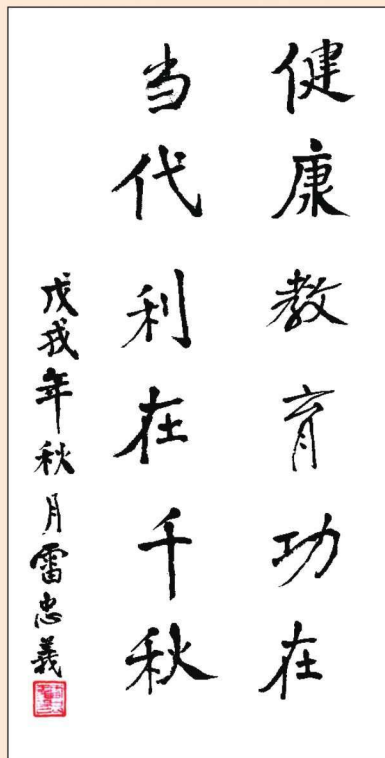 健康教育功在
当代利在千秋
戊戌年秋月雷忠義